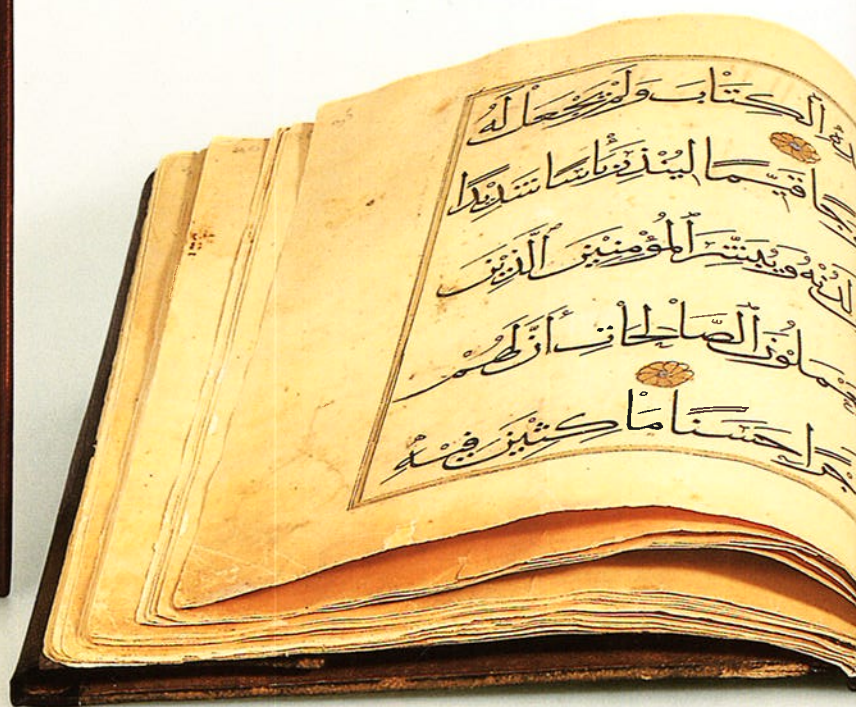 الْكِتَابَ وَلَمْ يَجْعَلْ لَهُ
قَيِّمًا لِيُنْذِرَ بَأْسًا شَدِيدًا
لَدُنْهُ وَيُبَشِّرَ الْمُؤْمِنِينَ الَّذِينَ
يَعْمَلُونَ الصَّالِحَاتِ أَنَّ لَهُمْ
أَجْرًا حَسَنًا مَاكِثِينَ فِيهِ